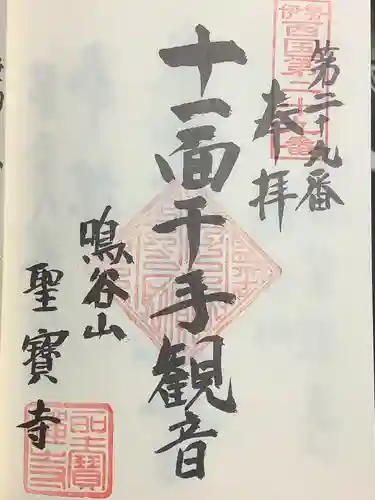 伊勢
西国第二十九番
第二十九番
奉拝
十一面千手観音
鳴谷山
聖寶寺